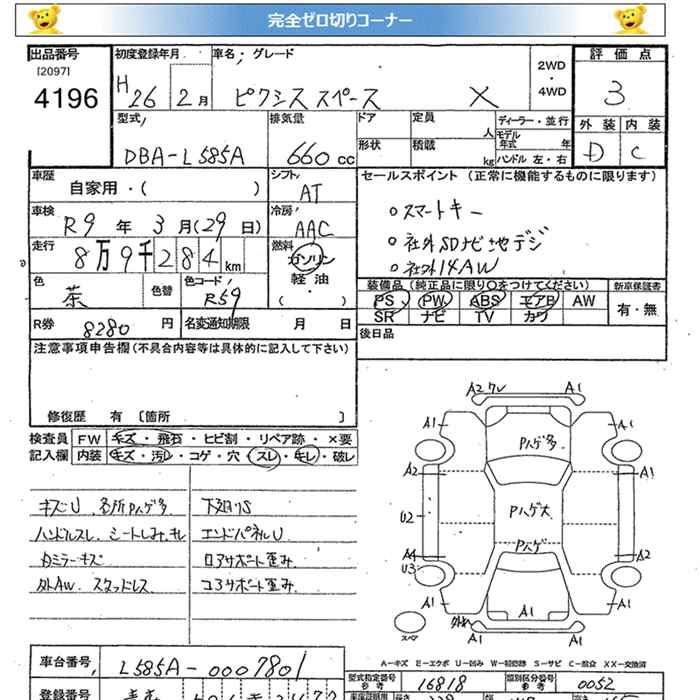 完全ゼロ切りコーナー
出品番号 初度登録年月 車名・グレード 2WD・4WD 評価点
[2097] 4196 H26 2月 ピクシススペース X 3
型式 排気量 ドア 定員 人 ディーラー・並行 外装 内装
DBA-L585A 660cc 形状 積載 kg モデル年式 年 ハンドル 左・右 D C
車歴 自家用・( ) シフト AT セールスポイント (正常に機能するものに限ります)
車検 R9年 3月(29日) 冷房 AAC ○スマートキー
走行 8万9千284km 燃料 ガソリン ○社外SDナビ 地デジ
軽油・( ) ○社外14AW
色 茶 色替 色コード R59 装備品(純正品に限り○をつけてください) 新車保証書
PS PW ABS エアB AW 有・無
SR ナビ TV カワ
R券 8280円 名変通知期限 月 日 後日品
注意事項申告欄(不具合内容等は具体的に記入して下さい)
修復歴 有 [箇所 ]
検査員記入欄 FW キズ・飛石・ヒビ割・リペア跡・×要
内装 キズ・汚レ・コゲ・穴・スレ・キレ・破レ
キズU 各所Pハゲ多 下廻りS
ハンドルスレ、シートしみ、キレ エンドパネルU
内ミラーキズ ロアサポート歪み
外AW スタッドレス コアサポート歪み
A2 ワレ A1
A1 A1
Pハゲ多
A2 A1
U2 Pハゲ大
Pハゲ
A4 A2
U3
A1 A1 A1
スペア
A1
A=キズ E=エクボ U=凹み W=補修跡 S=サビ C=腐食 XX=交換済
車台番号 L585A-0007801 型式指定番号 16818 類別区分番号 0052
登録番号